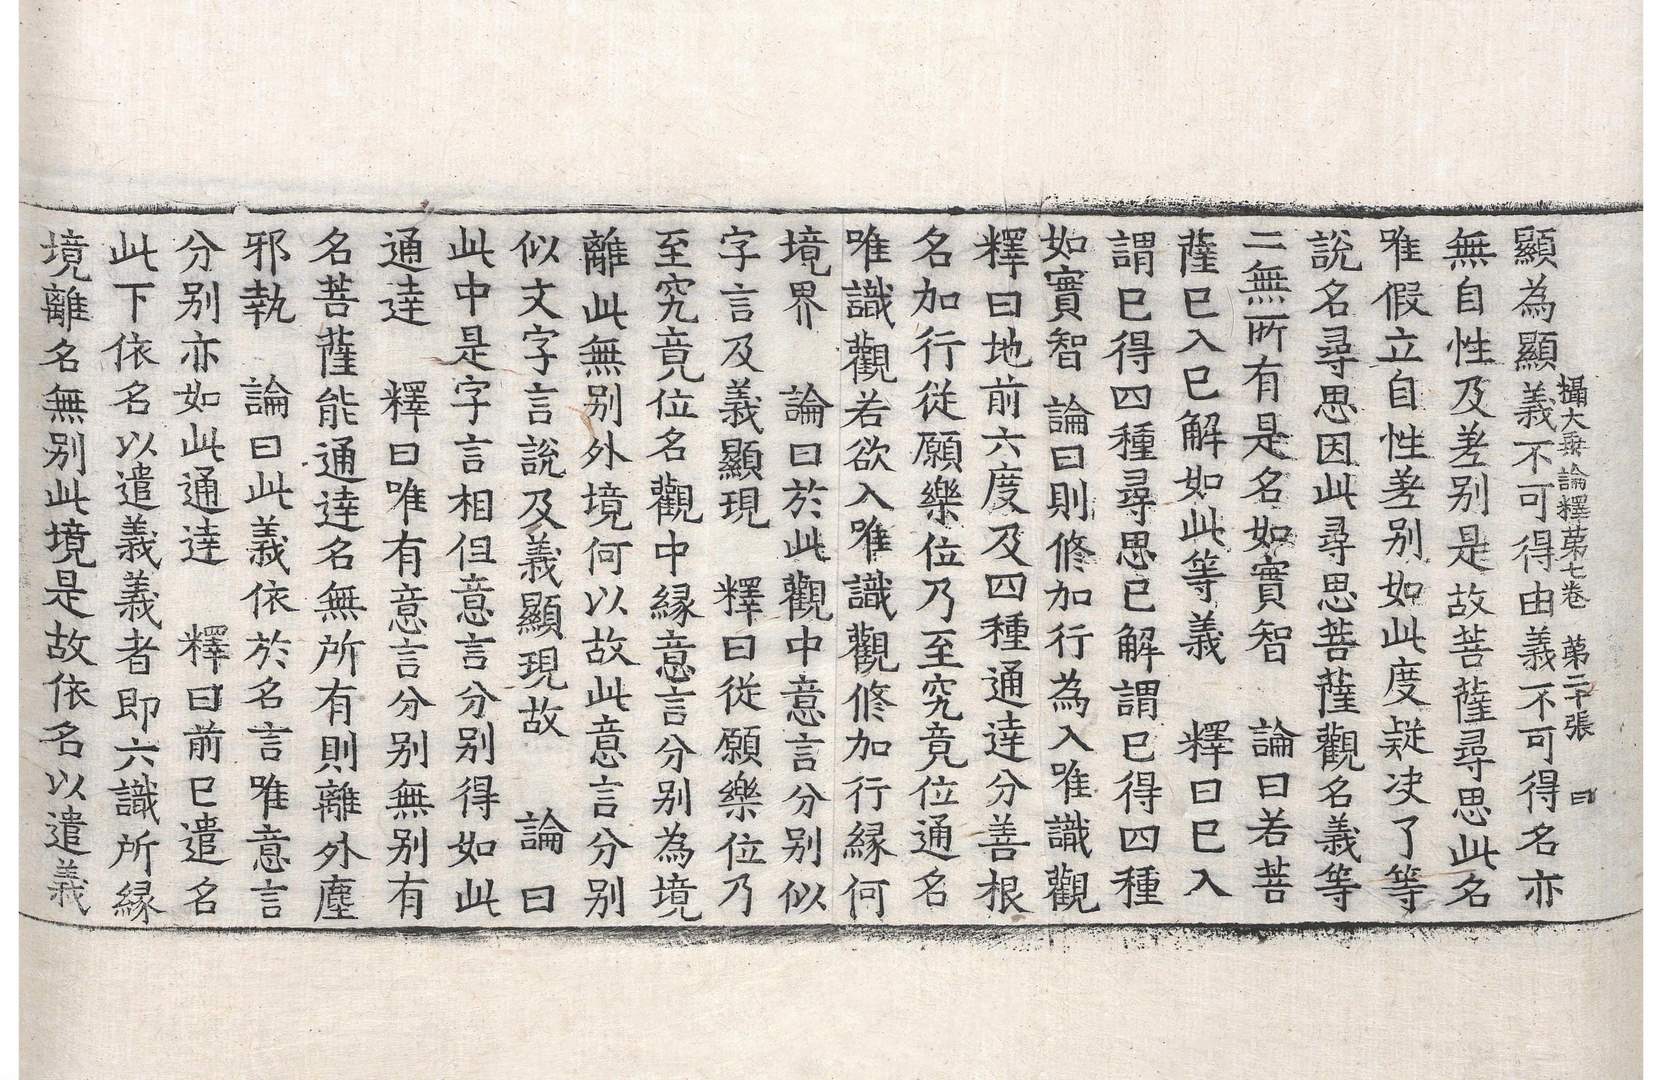 攝大乘論釋第七卷　第二十張　曰
顯為顯義不可得由義不可得名亦
無自性及差別是故菩薩尋思此名
唯假立自性差別如此度疑決了等
說名尋思因此尋思菩薩觀名義等
二無所有是名如實智　論曰若菩
薩已入已解如此等義　釋曰已入
謂已得四種尋思已解謂已得四種
如實智　論曰則修加行為入唯識觀
釋曰地前六度及四種通達分善根
名加行從願樂位乃至究竟位通名
唯識觀若欲入唯識觀修加行緣何
境界　論曰於此觀中意言分別似
字言及義顯現　釋曰從願樂位乃
至究竟位名觀中緣意言分別為境
離此無別外境何以故此意言分別
似文字言說及義顯現故　論曰
此中是字言相但意言分別得如此
通達　釋曰唯有意言分別無別有
名菩薩能通達名無所有則離外塵
邪執　論曰此義依於名言唯意言
分別亦如此通達　釋曰前已遣名
此下依名以遣義義者即六識所緣
境離名無別此境是故依名以遣義